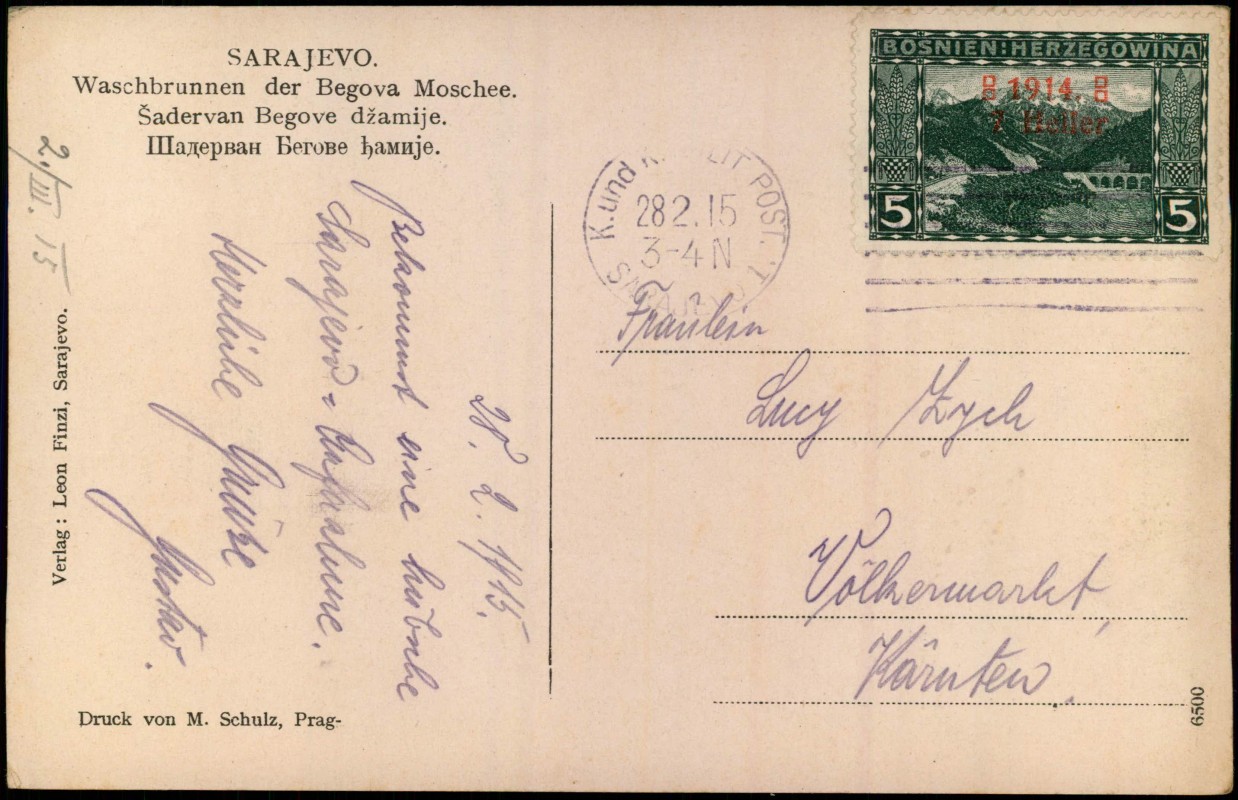 SARAJEVO.
Waschbrunnen der Begova Moschee.
Šadervan Begove džamije.
Шадерван Бегове ђамије.
BOSNIEN:HERZEGOWINA
1914.
7 Heller
5 5
K. und K. MILIT POST.
28 2. 15
3-4 N
28. 2. 1915.
Bekommst eine hübsche
Sarajevo
Herzliche Grüße
Gustav.
Fräulein
Lucy Zych
Völkermarkt,
Kärnten
2./III. 15
Verlag: Leon Finzi, Sarajevo.
Druck von M. Schulz, Prag-
6500